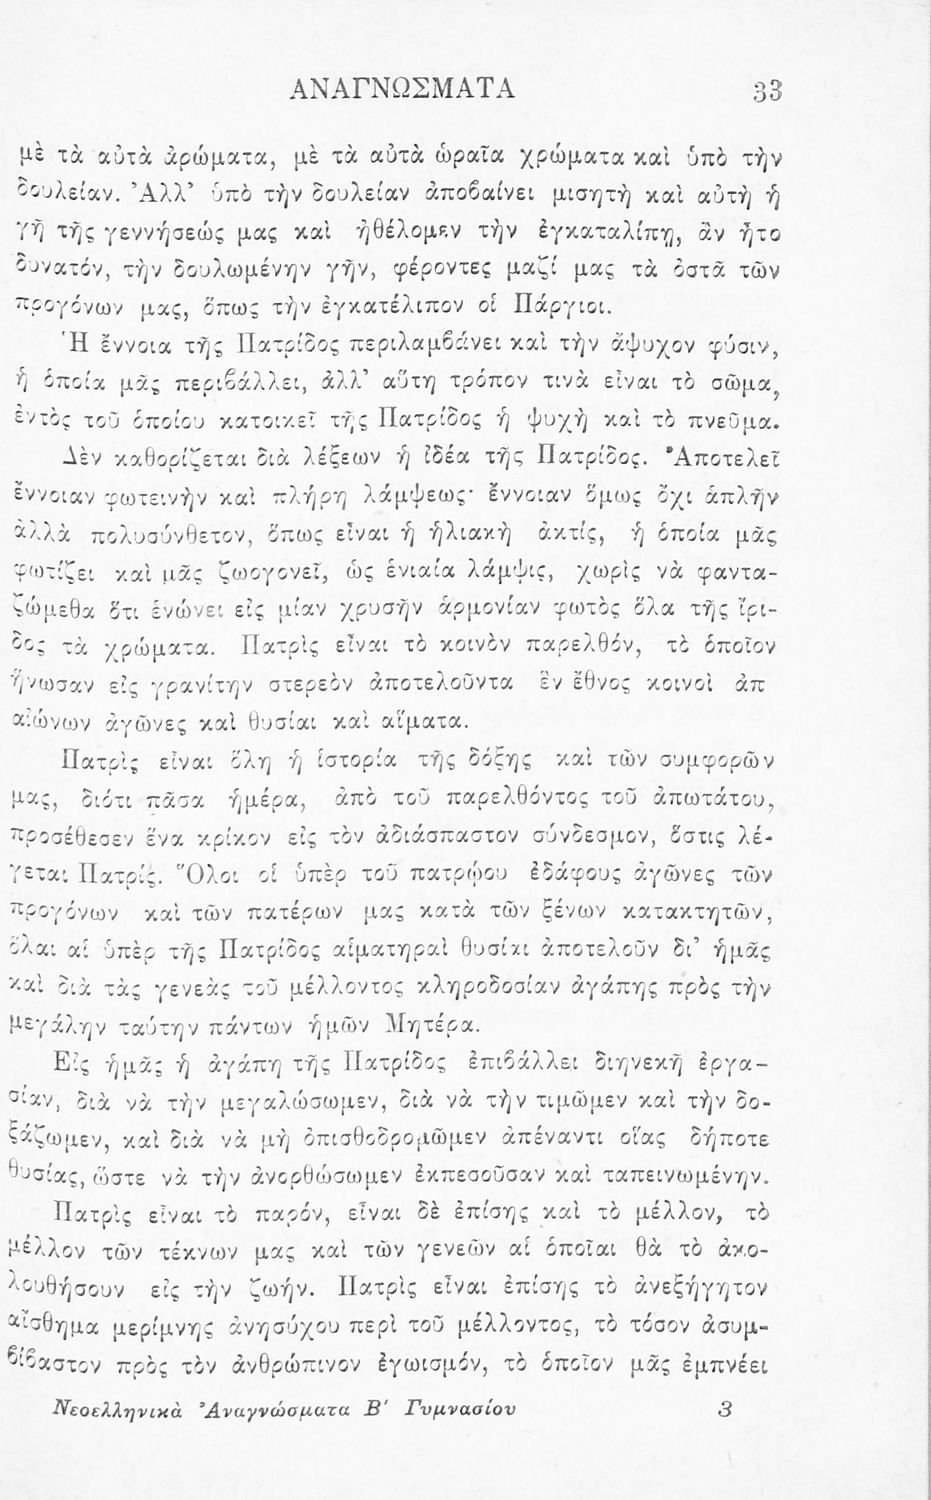 ΑΝΑΓΝΩΣΜΑΤΑ 33
μὲ τὰ αὐτὰ ἀρώματα, μὲ τὰ αὐτὰ ὡραῖα χρώματα καὶ ὑπὸ τὴν
δουλείαν. Ἀλλ’ ὑπὸ τὴν δουλείαν ἀποβαίνει μισητὴ καὶ αὐτὴ ἡ
γῆ τῆς γεννήσεώς μας καὶ ἠθέλομεν τὴν ἐγκαταλίπῃ, ἂν ἦτο
δυνατόν, τὴν δουλωμένην γῆν, φέροντες μαζί μας τὰ ὀστᾶ τῶν
προγόνων μας, ὅπως τὴν ἐγκατέλιπον οἱ Πάργιοι.
Ἡ ἔννοια τῆς Πατρίδος περιλαμβάνει καὶ τὴν ἄψυχον φύσιν,
ἡ ὁποία μᾶς περιβάλλει, ἀλλ’ αὕτη τρόπον τινὰ εἶναι τὸ σῶμα,
ἐντὸς τοῦ ὁποίου κατοικεῖ τῆς Πατρίδος ἡ ψυχὴ καὶ τὸ πνεῦμα.
Δὲν καθορίζεται διὰ λέξεων ἡ ἰδέα τῆς Πατρίδος. Ἀποτελεῖ
ἔννοιαν φωτεινὴν καὶ πλήρη λάμψεως· ἔννοιαν ὅμως ὄχι ἁπλῆν
ἀλλὰ πολυσύνθετον, ὅπως εἶναι ἡ ἡλιακὴ ἀκτίς, ἡ ὁποία μᾶς
φωτίζει καὶ μᾶς ζωογονεῖ, ὡς ἑνιαία λάμψις, χωρὶς νὰ φαντα-
ζώμεθα ὅτι ἑνώνει εἰς μίαν χρυσῆν ἁρμονίαν φωτὸς ὅλα τῆς ἴρι-
δος τὰ χρώματα. Πατρὶς εἶναι τὸ κοινὸν παρελθόν, τὸ ὁποῖον
ἥνωσαν εἰς γρανίτην στερεὸν ἀποτελοῦντα ἓν ἔθνος κοινοὶ ἀπ
αἰώνων ἀγῶνες καὶ θυσίαι καὶ αἵματα.
Πατρὶς εἶναι ὅλη ἡ ἱστορία τῆς δόξης καὶ τῶν συμφορῶν
μας, διότι πᾶσα ἡμέρα, ἀπὸ τοῦ παρελθόντος τοῦ ἀπωτάτου,
προσέθεσεν ἕνα κρίκον εἰς τὸν ἀδιάσπαστον σύνδεσμον, ὅστις λέ-
γεται Πατρίς. Ὅλοι οἱ ὑπὲρ τοῦ πατρῴου ἐδάφους ἀγῶνες τῶν
προγόνων καὶ τῶν πατέρων μας κατὰ τῶν ξένων κατακτητῶν,
ὅλαι αἱ ὑπὲρ τῆς Πατρίδος αἱματηραὶ θυσίαι ἀποτελοῦν δι’ ἡμᾶς
καὶ διὰ τὰς γενεὰς τοῦ μέλλοντος κληροδοσίαν ἀγάπης πρὸς τὴν
μεγάλην ταύτην πάντων ἡμῶν Μητέρα.
Εἰς ἡμᾶς ἡ ἀγάπη τῆς Πατρίδος ἐπιβάλλει διηνεκῆ ἐργα-
σίαν, διὰ νὰ τὴν μεγαλώσωμεν, διὰ νὰ τὴν τιμῶμεν καὶ τὴν δο-
ξάζωμεν, καὶ διὰ νὰ μὴ ὀπισθοδρομῶμεν ἀπέναντι οἵας δήποτε
θυσίας, ὥστε νὰ τὴν ἀνορθώσωμεν ἐκπεσοῦσαν καὶ ταπεινωμένην.
Πατρὶς εἶναι τὸ παρόν, εἶναι δὲ ἐπίσης καὶ τὸ μέλλον, τὸ
μέλλον τῶν τέκνων μας καὶ τῶν γενεῶν αἱ ὁποῖαι θὰ τὸ ἀκο-
λουθήσουν εἰς τὴν ζωήν. Πατρὶς εἶναι ἐπίσης τὸ ἀνεξήγητον
αἴσθημα μερίμνης ἀνησύχου περὶ τοῦ μέλλοντος, τὸ τόσον ἀσυμ-
βίβαστον πρὸς τὸν ἀνθρώπινον ἐγωισμόν, τὸ ὁποῖον μᾶς ἐμπνέει
Νεοελληνικὰ Ἀναγνώσματα Β΄ Γυμνασίου 3